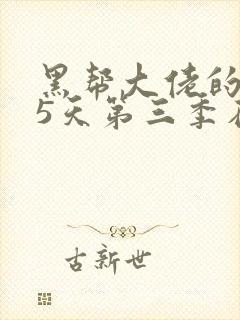 黑帮大佬的
5天第三季
古新世